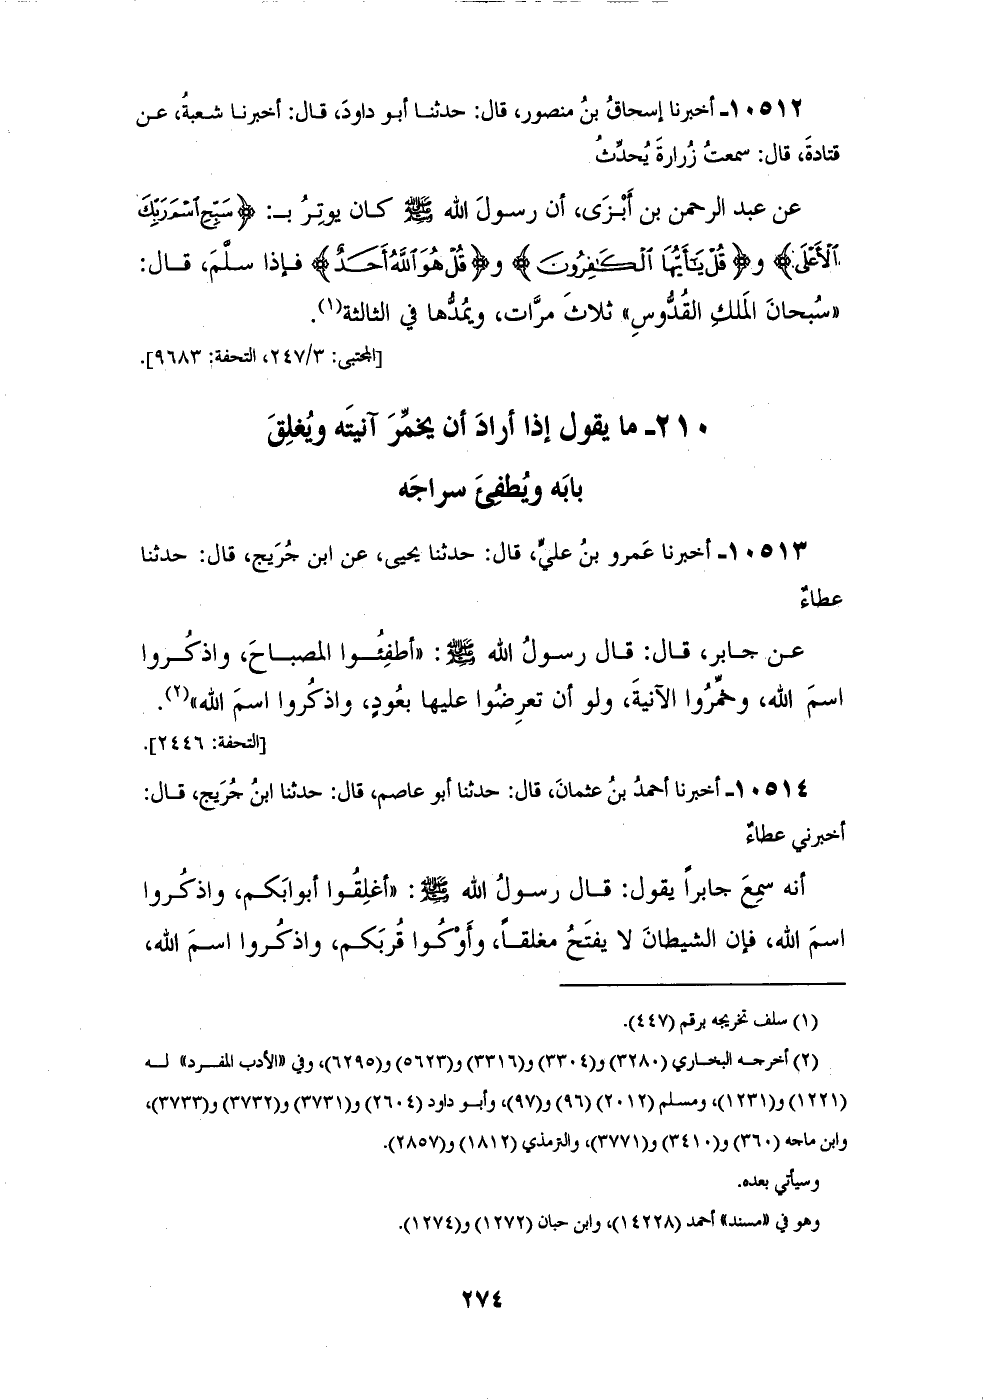 ١٠٥١٢ـ أخبرنا إسحاقُ بنُ منصور، قال: حدثنا أبو داودَ، قال: أخبرنا شعبةُ، عن
قتادةَ، قال: سمعتُ زُرارةَ يُحدِّثُ
عن عبد الرحمن بن أَبْزَى، أن رسولَ الله ﷺ كان يوتِرُ بـ: ﴿سَبِّحِ ٱسْمَ رَبِّكَ
ٱلْأَعْلَى﴾ و﴿قُلْ يَٰٓأَيُّهَا ٱلْكَٰفِرُونَ﴾ و﴿قُلْ هُوَ ٱللَّهُ أَحَدٌ﴾ فإذا سلَّمَ، قال:
«سُبحانَ الَملكِ القُدُّوسِ» ثلاثَ مرَّات، ويَمُدُّها في الثالثة(١).
[المجتبى: ٢٤٧/٣، التحفة: ٩٦٨٣].
٢١٠ـ ما يقول إذا أرادَ أن يخمِّرَ آنيتَه ويُغلِقَ
بابَه ويُطفِئَ سراجَه
١٠٥١٣ـ أخبرنا عَمرو بنُ عليٍّ، قال: حدثنا يحيى، عن ابن جُرَيج، قال: حدثنا
عطاءٌ
عن جابر، قال: قال رسولُ الله ﷺ: «أطفِئُوا المصباحَ، واذكُروا
اسمَ الله، وخمِّرُوا الآنيةَ، ولو أن تعرِضُوا عليها بعُودٍ، واذكُروا اسمَ الله»(٢).
[التحفة: ٢٤٤٦].
١٠٥١٤ـ أخبرنا أحمدُ بنُ عثمانَ، قال: حدثنا أبو عاصم، قال: حدثنا ابنُ جُرَيج، قال:
أخبرني عطاءٌ
أنه سمِعَ جابراً يقول: قال رسولُ الله ﷺ: «أغلِقُوا أبوابَكم، واذكُروا
اسمَ الله، فإن الشيطانَ لا يفتَحُ مغلقاً، وأَوْكُوا قُربَكم، واذكُروا اسمَ الله،
(١) سلف تخريجه برقم (٤٤٧).
(٢) أخرجه البخاري (٣٢٨٠) و(٣٣٠٤) و(٣٣١٦) و(٥٦٢٣) و(٦٢٩٥)، وفي «الأدب المفرد» له
(١٢٢١) و(١٢٣١)، ومسلم (٢٠١٢) (٩٦) و(٩٧)، وأبو داود (٢٦٠٤) و(٣٧٣١) و(٣٧٣٢) و(٣٧٣٣)،
وابن ماجه (٣٦٠) و(٣٤١٠) و(٣٧٧١)، والترمذي (١٨١٢) و(٢٨٥٧).
وسيأتي بعده.
وهو في «مسند» أحمد (١٤٢٢٨)، وابن حبان (١٢٧٢) و(١٢٧٤).
٢٧٤